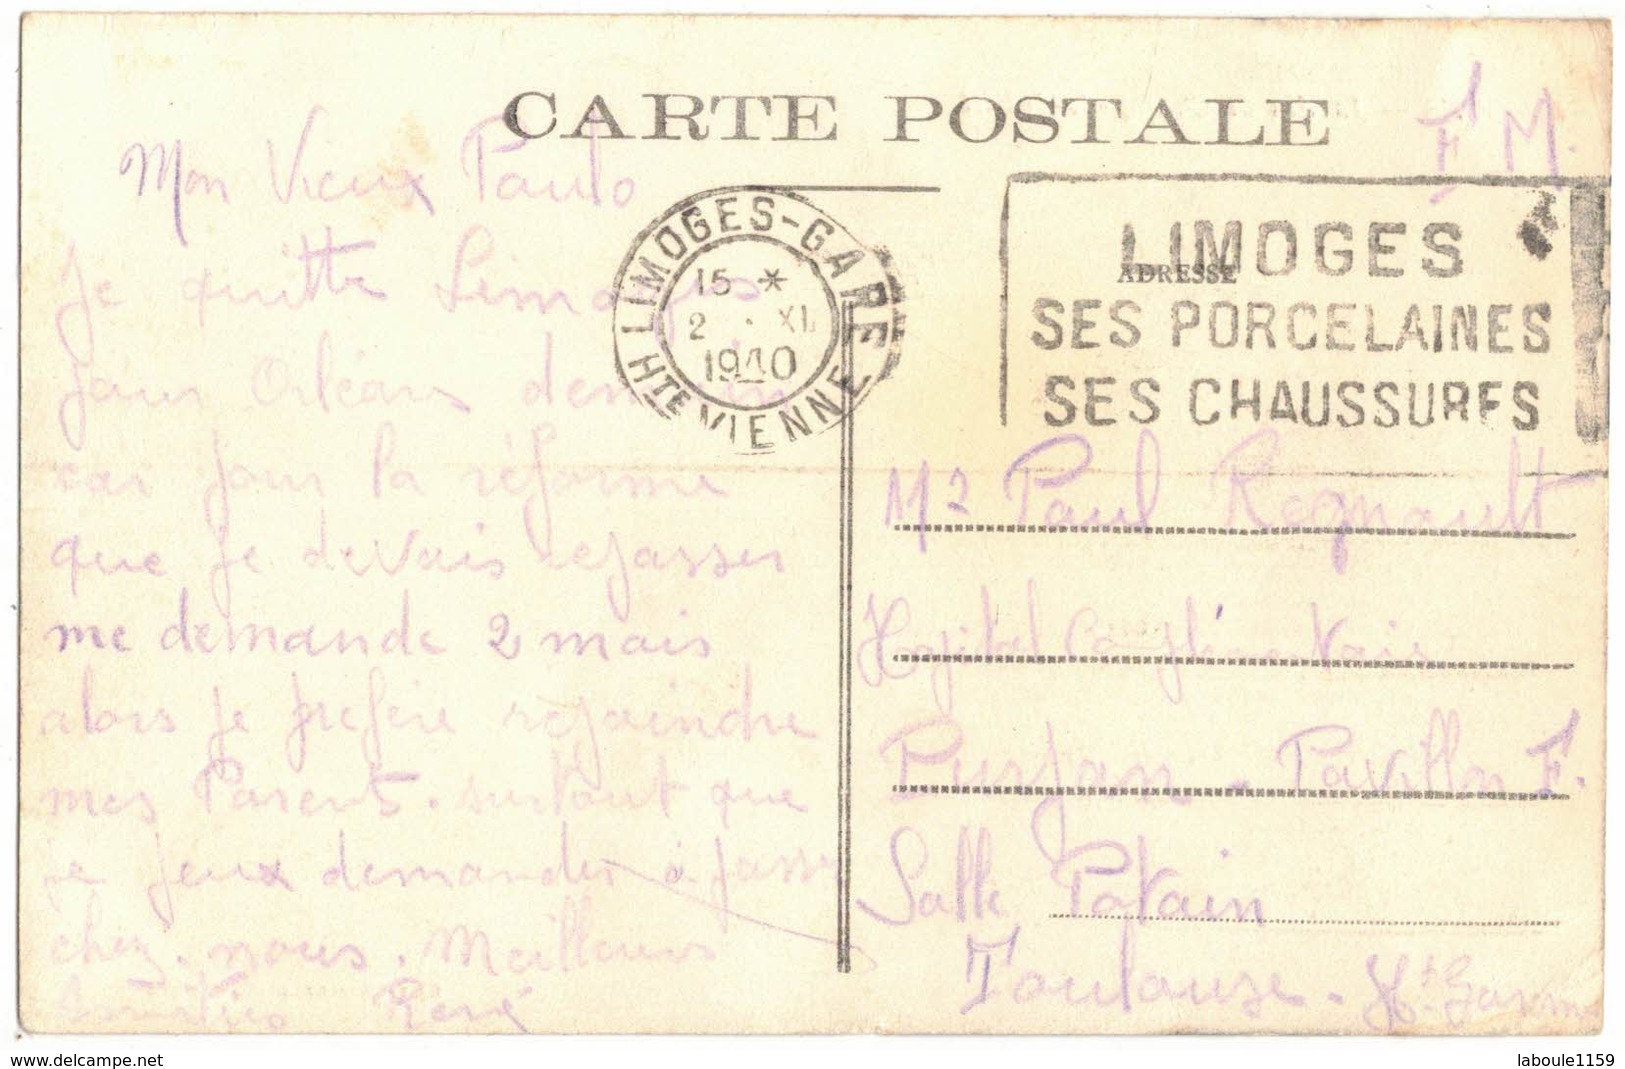 CARTE POSTALE
F M.
Mon Vieux Paulo
Je quitte Limoges
pour Orléans demain
car pour la réforme
que je devais repasser
me demande 2 mois
alors je préfère rejoindre
mes Parents. surtout que
je peux demander à passer
chez. nous. Meilleurs
Amitiés René
LIMOGES-GARE
15 *
2 · XI
1940
HTE VIENNE
LIMOGES
SES PORCELAINES
SES CHAUSSURES
ADRESSE
Mr Paul Regnault
Hopital Complémentaire
Purpan - Pavillon F.
Salle
Toulouse - Hte Garonne
www.delcampe.net
laboule1159